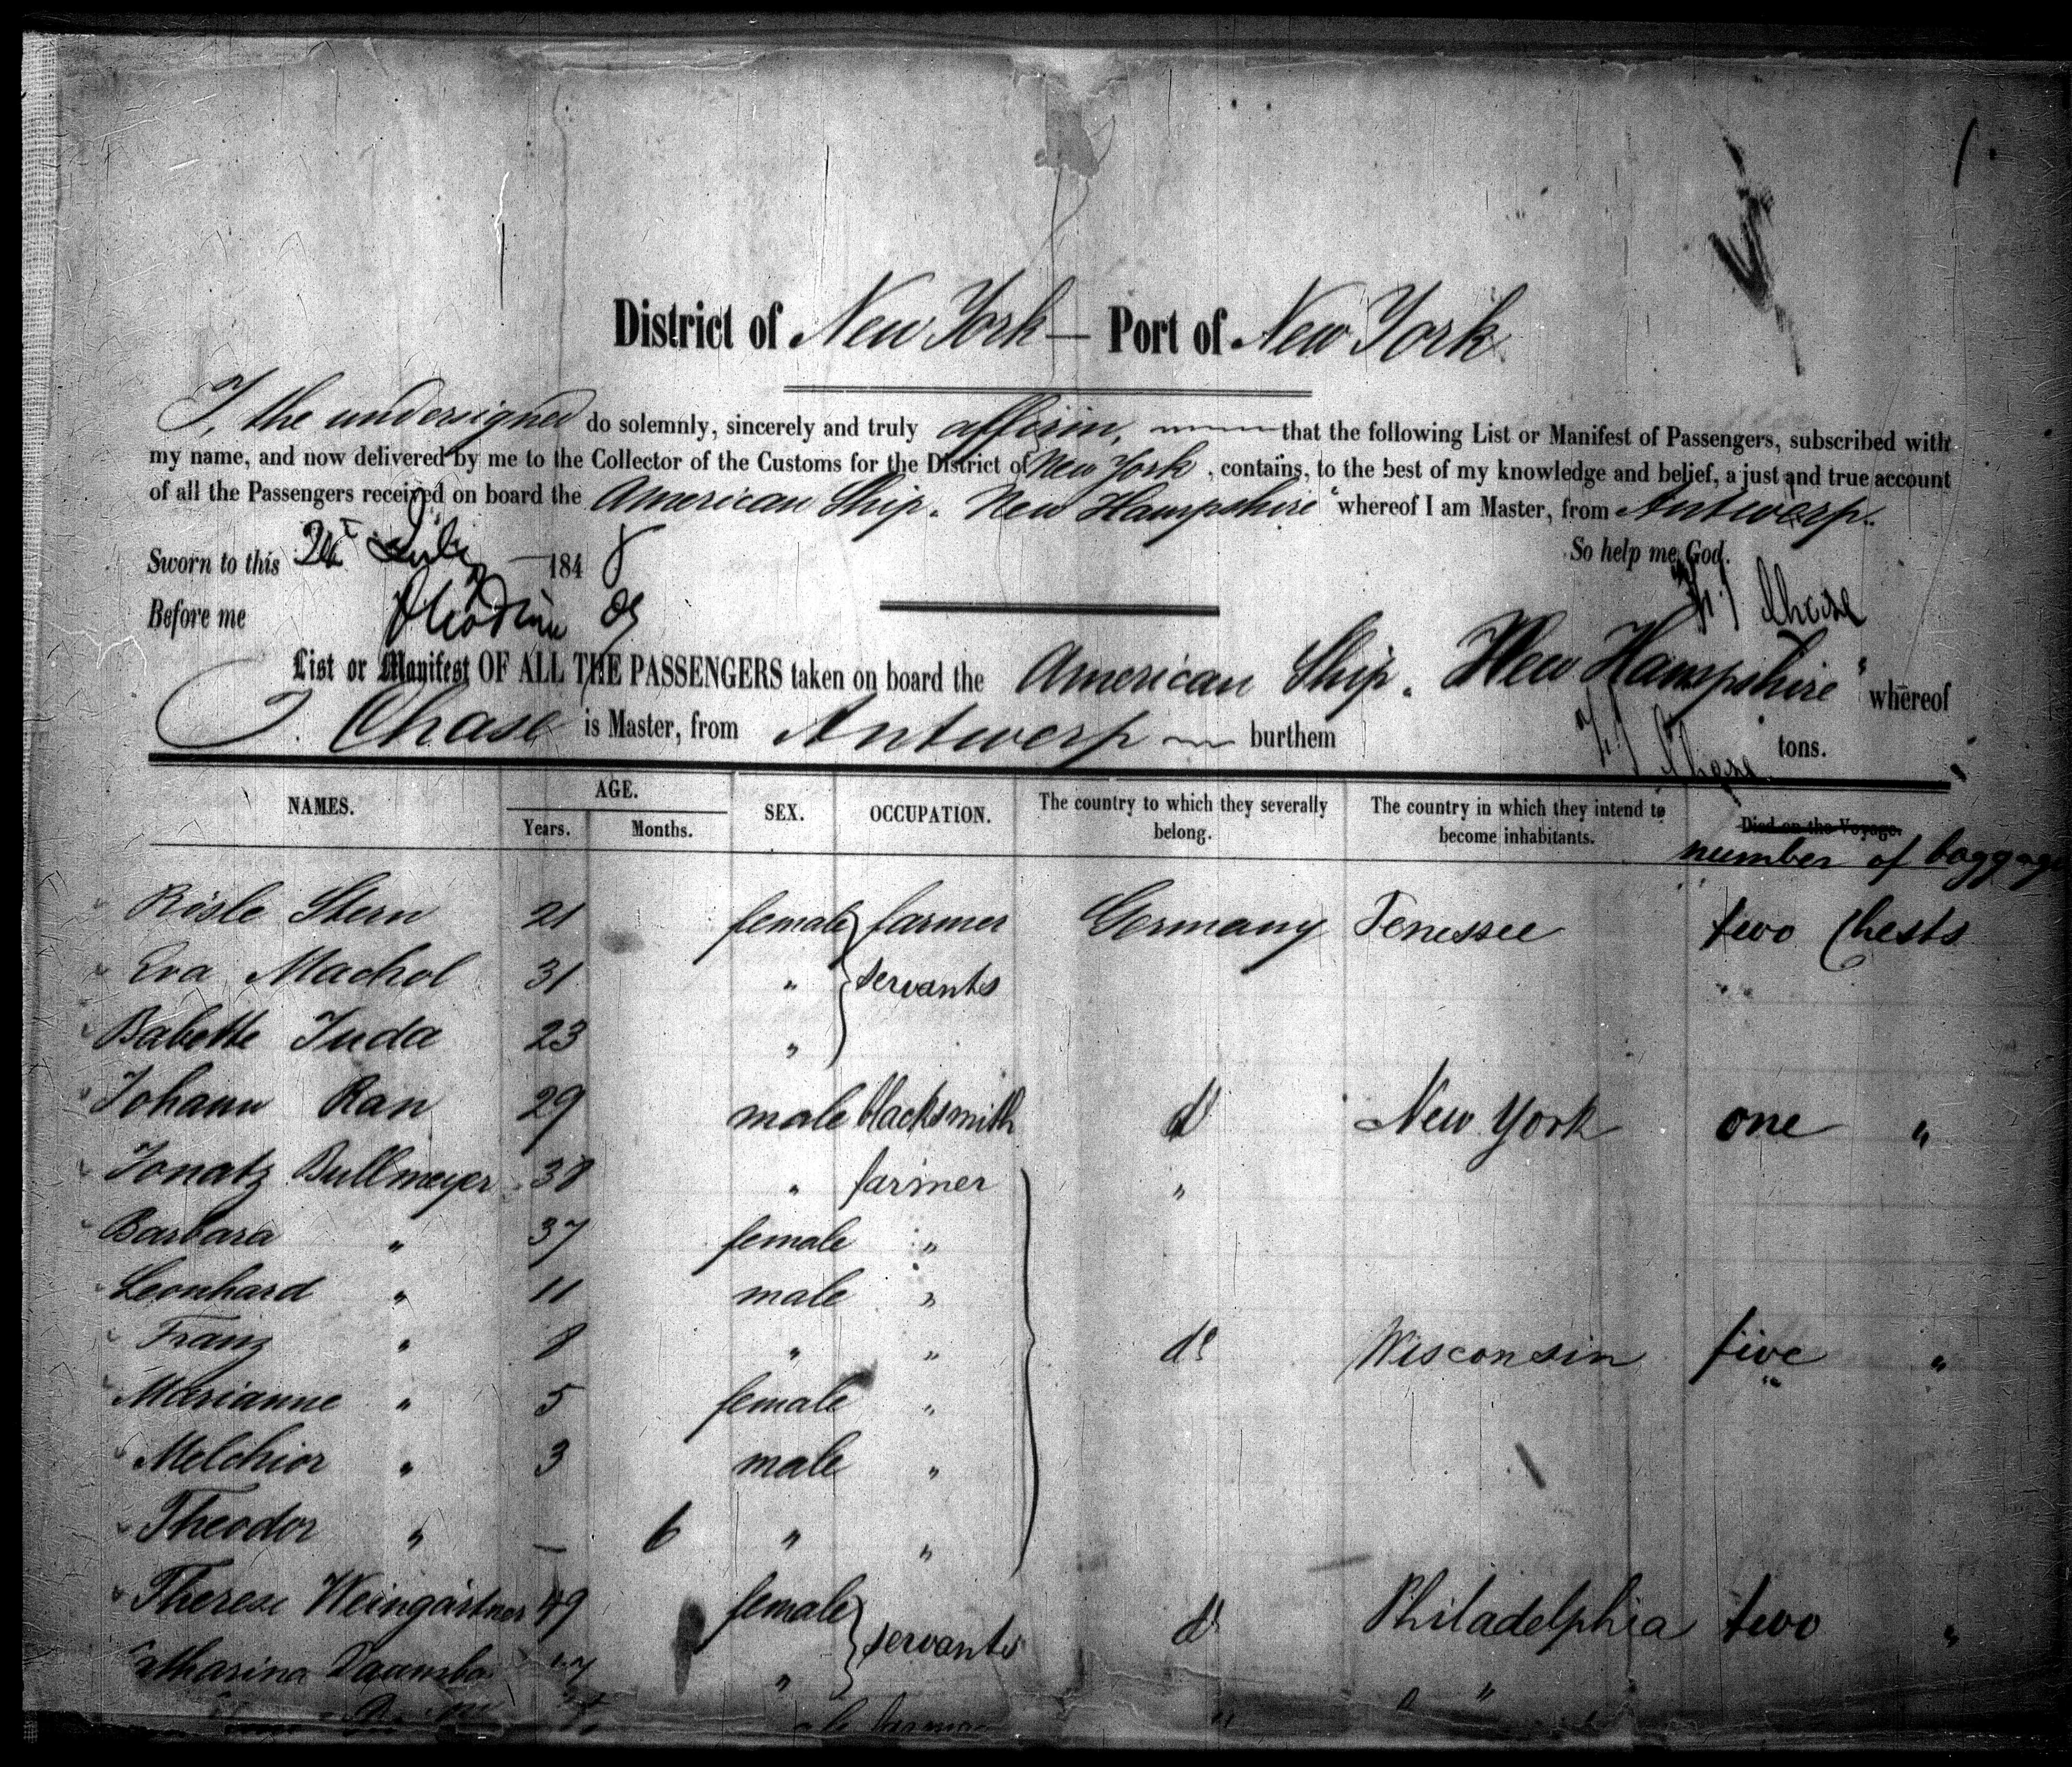 District of New York — Port of New York
I, the undersigned do solemnly, sincerely and truly affirm, that the following List or Manifest of Passengers, subscribed with
my name, and now delivered by me to the Collector of the Customs for the District of New York, contains, to the best of my knowledge and belief, a just and true account
of all the Passengers received on board the American Ship "New Hampshire" whereof I am Master, from Antwerp.
So help me God.
Sworn to this July 1848
Chase
Before me
List or Manifest OF ALL THE PASSENGERS taken on board the American Ship "New Hampshire" whereof
Chase is Master, from Antwerp — burthem tons.
Chase
NAMES. AGE. SEX. OCCUPATION. The country to which they severally belong. The country in which they intend to become inhabitants. Died on the Voyage.
Years. Months. number of baggage
Rösle Stern 21 female farmer Germany Tenessee two Chests
Eva Machol 31 " servants "
Babette Juda 23 "
Johann Rau 29 male blacksmith do New York one "
Ignatz Bullmeyer 38 " farmer "
Barbara " 37 female "
Leonhard " 11 male "
Franz " 8 " " do Wisconsin five "
Marianne " 5 female "
Melchior " 3 male "
Theodor " — 6 " "
Therese Weingärtner 49 female servants do Philadelphia two "
Catharina "